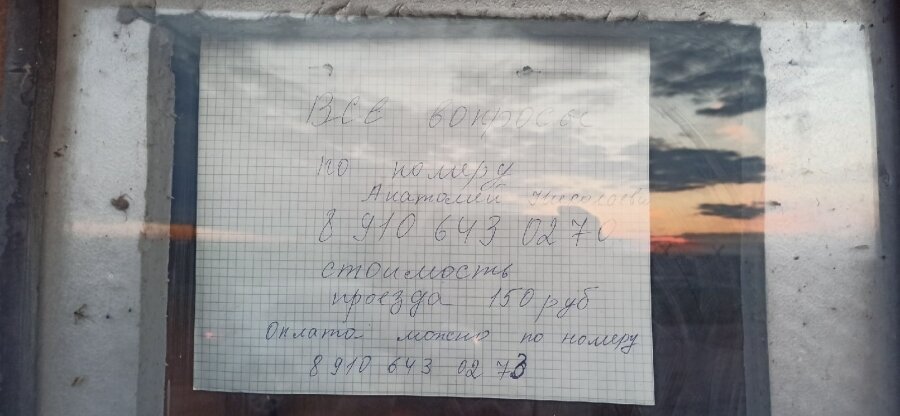 Все вопросы
по номеру
Анатолий Николаевич
8 910 643 0270
стоимость
проезда 150 руб
Оплата можно по номеру
8 910 643 02 70